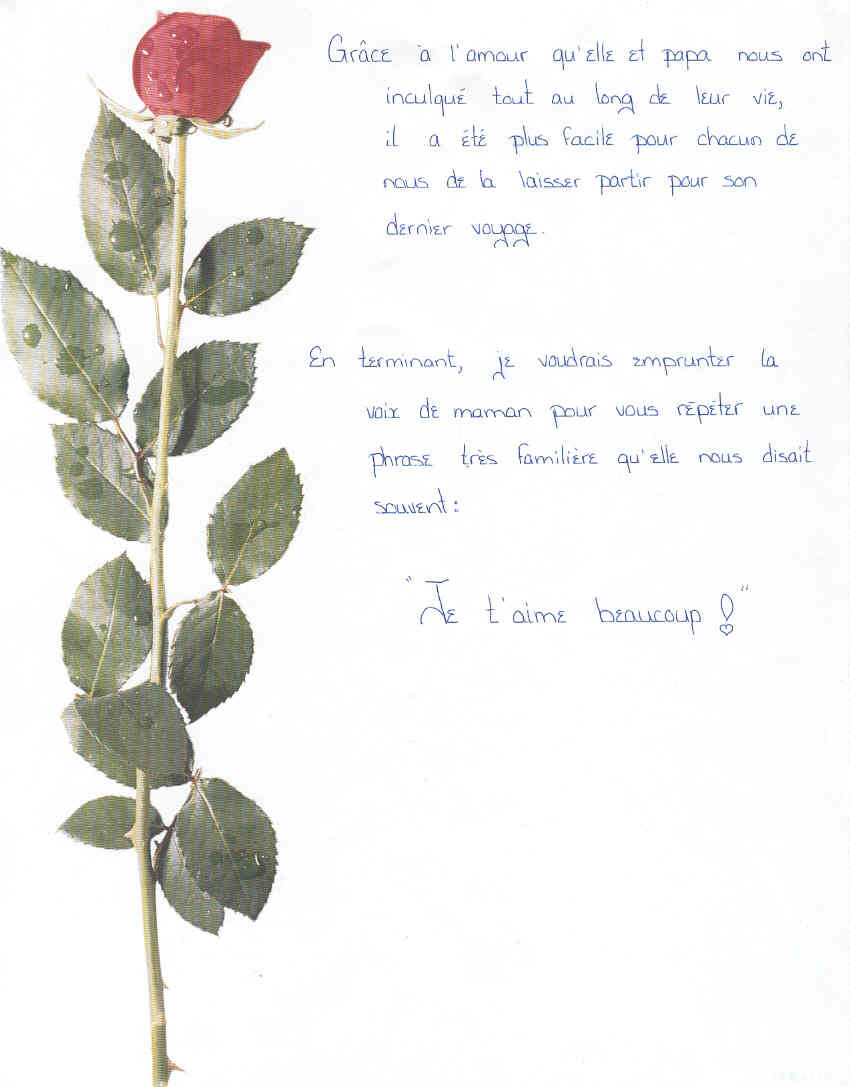 Grâce à l'amour qu'elle et papa nous ont
inculqué tout au long de leur vie,
il a été plus facile pour chacun de
nous de la laisser partir pour son
dernier voyage.
En terminant, je voudrais emprunter la
voix de maman pour vous répéter une
phrase très familière qu'elle nous disait
souvent :
"Je t'aime beaucoup !"